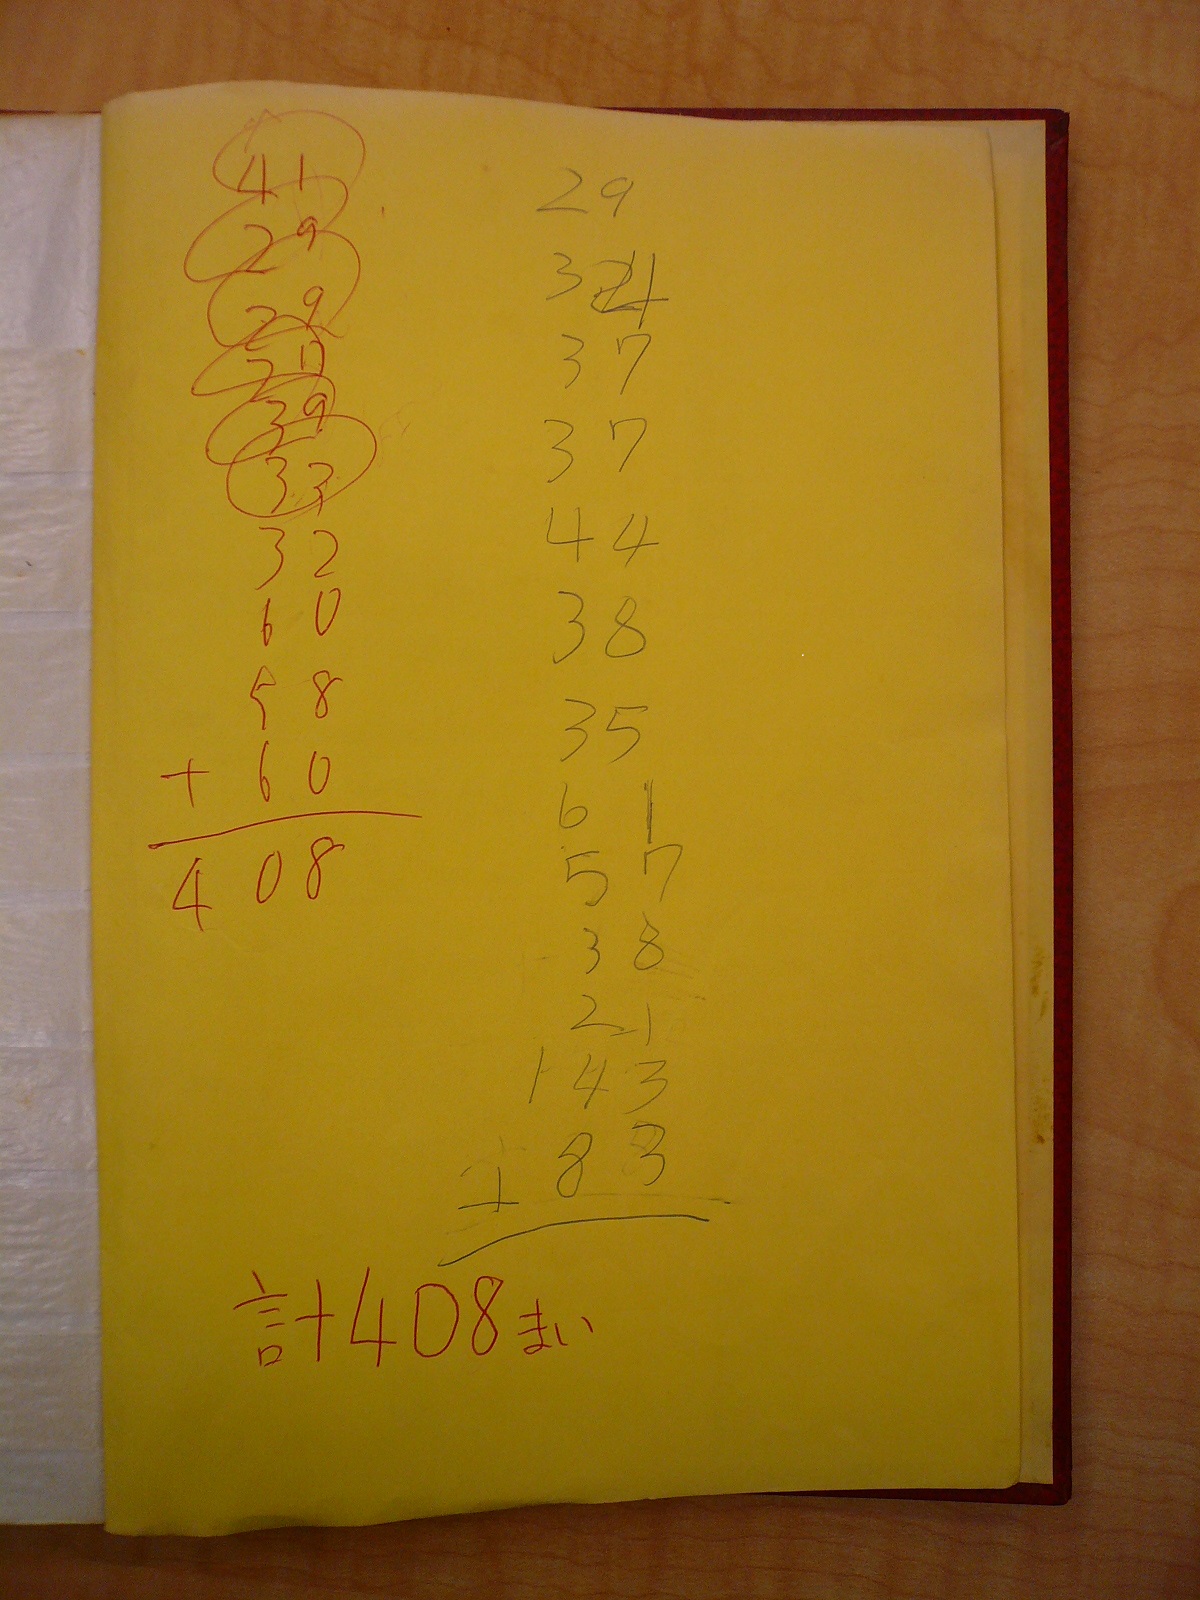 41
29
29
27
39
33
32
60
58
+ 60
408
29
34
37
37
44
38
35
61
57
38
21
143
+ 83
計408まい